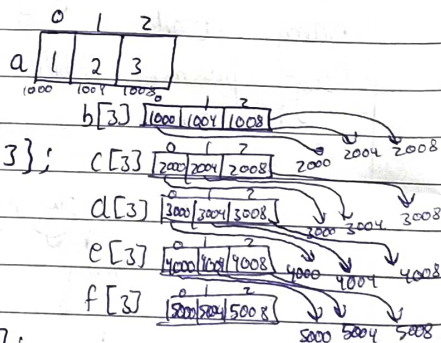 0 1 2
a 1 2 3
1000 1004 1008
0 1 2
b[3] 1000 1004 1008
2000 2004 2008
0 1 2
3}; c[3] 2000 2004 2008
3000 3004 3008
0 1 2
d[3] 3000 3004 3008
4000 4004 4008
0 1 2
e[3] 4000 4004 4008
0 1 2
f[3] 5000 5004 5008
5000 5004 5008
};